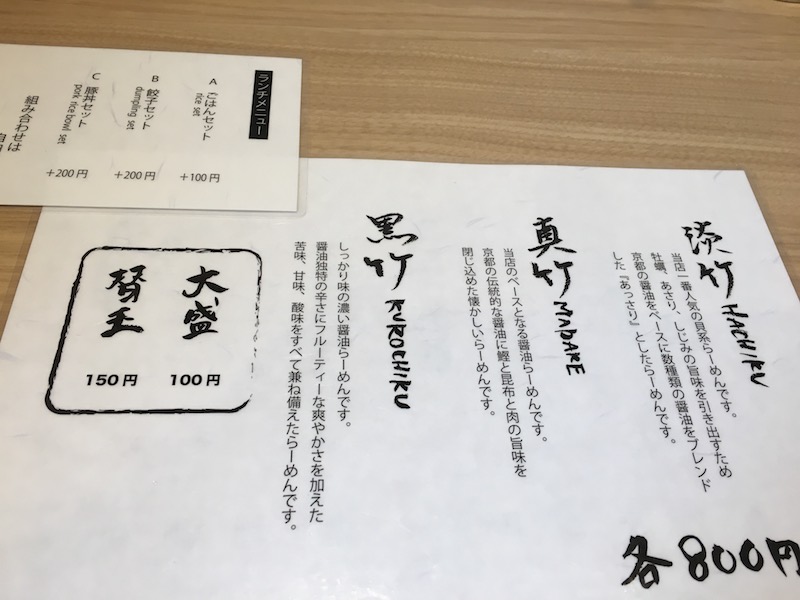 ランチメニュー
A ごはんセット
rice set
+100円
B 餃子セット
dumpling set
+200円
C 豚丼セット
pork rice bowl set
+200円
組み合わせは
淡竹 HACHIKU
当店一番人気の貝系らーめんです。
牡蠣、あさり、しじみの旨味を引き出すため
京都の醤油をベースに数種類の醤油をブレンド
した『あっさり』としたらーめんです。
真竹 MADAKE
当店のベースとなる醤油らーめんです。
京都の伝統的な醤油に鰹と昆布と肉の旨味を
閉じ込めた懐かしいらーめんです。
黒竹 KUROCHIKU
しっかり味の濃い醤油らーめんです。
醤油独特の辛さにフルーティーな爽やかさを加えた
苦味、甘味、酸味をすべて兼ね備えたらーめんです。
大盛
100円
替玉
150円
各800円